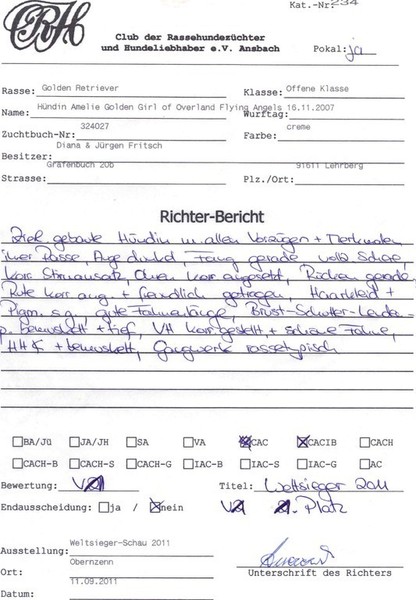 CRH
Kat.-Nr: 234
Club der Rassehundezüchter
und Hundeliebhaber e.V. Ansbach
Pokal: ja
Rasse: Golden Retriever
Klasse: Offene Klasse
Name: Hündin Amelie Golden Girl of Overland Flying Angels 16.11.2007
Wurftag:
Zuchtbuch-Nr: 324027
Farbe: creme
Besitzer: Diana & Jürgen Fritsch
Grafenbuch 20b 91611 Lehrberg
Strasse: Plz./Ort:
Richter-Bericht
gebaute Hündin m. allen Vorzügen + Merkmalen
ihrer Rasse, Auge dunkel, Fang gerade, vollz. Schere,
korr. Stirnansatz, Ohren korr. angesetzt, Rücken gerade,
Rute korr. ang. + freundlich getragen, Haarkleid +
Pigm. s.g., gute
p. bemuskelt + tief, VH korr. gestellt + schöne
HHK + bemuskelt, Gangwerk rassetypisch
BA/Jü JA/JH SA VA CAC CACIB CACH
CACH-B CACH-S CACH-G IAC-B IAC-S IAC-G AC
Bewertung: V1 Titel: Weltsieger 2011
Endausscheidung: ja / nein V1 1. Platz
Ausstellung: Weltsieger-Schau 2011
Ort: Obernzenn
Unterschrift des Richters
Datum: 11.09.2011